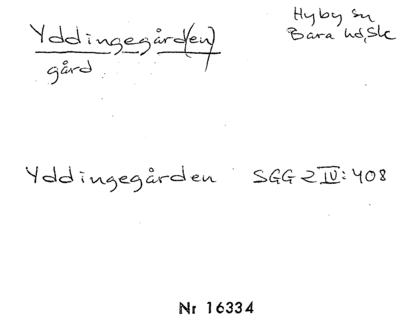 Yddingegård(en)
gård
Hyby sn
Bara hd, Sk
Yddingegården SGG 2 IV: 408
Nr 16334